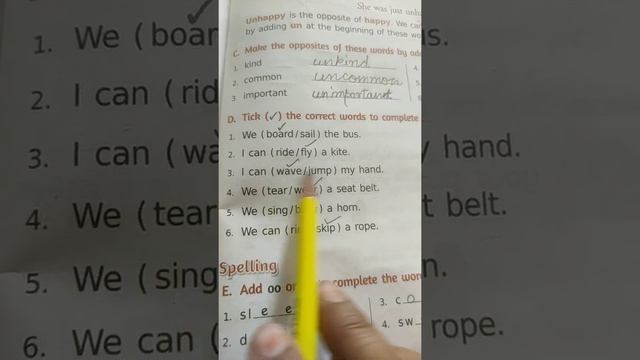 She was just unh
Unhappy is the opposite of happy. We can
by adding un at the beginning of these wo
C. Make the opposites of these words by ad
1. kind unkind 4.
2. common uncommon 5.
3. important unimportant 6
D. Tick (✓) the correct words to complete
1. We (board/sail) the bus.
2. I can (ride/fly) a kite.
3. I can (wave/jump) my hand.
4. We (tear/wear) a seat belt.
5. We (sing/b) a horn.
6. We can (rid skip) a rope.
Spelling
E. Add oo or complete the wor
1. sl e e 3. c o
2. d 4. sw
1. We (boar
2. I can (rid
3. I can (wa hand.
4. We (tear t belt.
5. We (sing n.
6. We can ( rope.